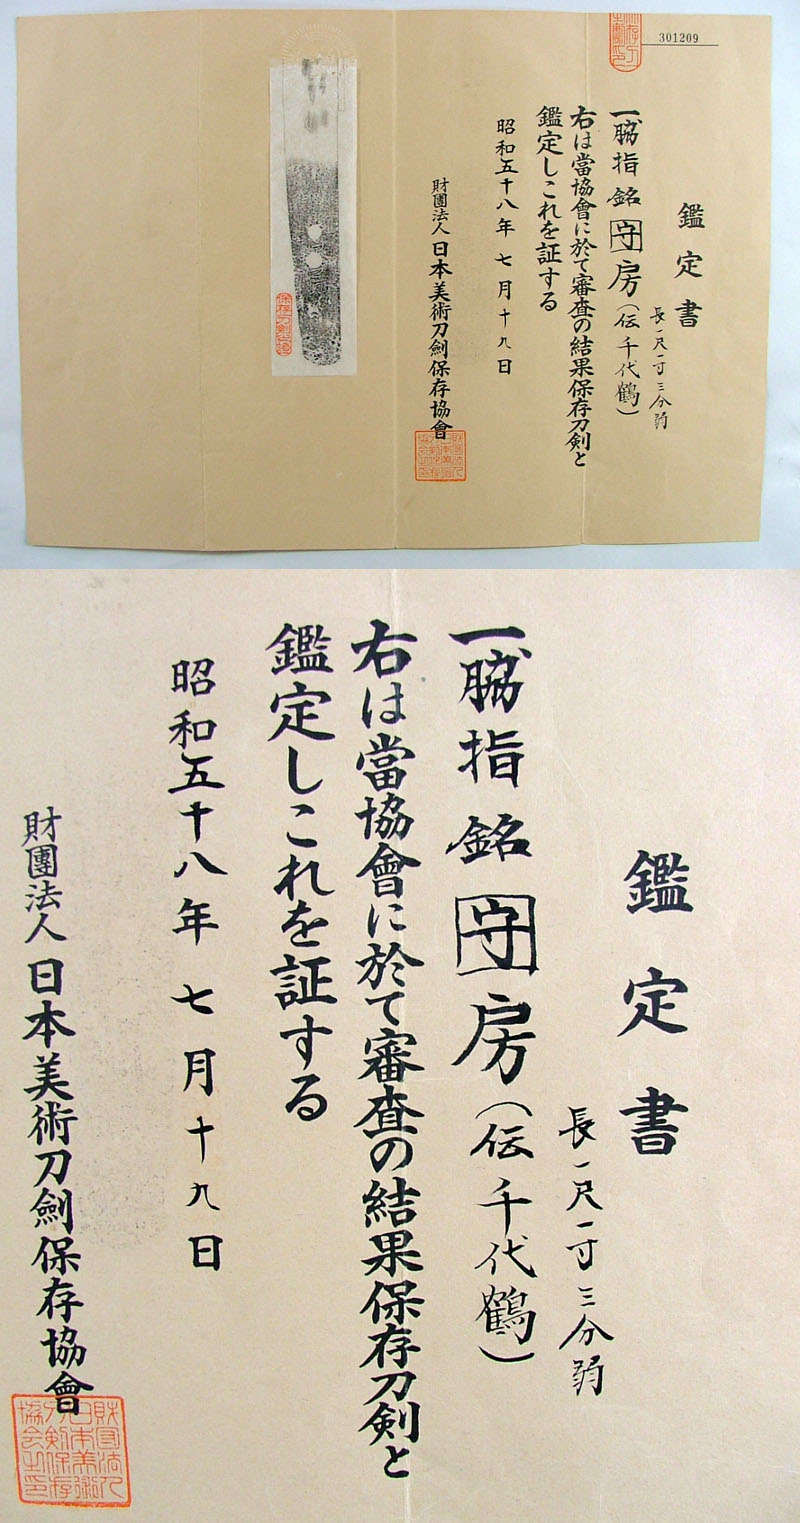 301209
鑑定書
長一尺一寸三分弱
一、脇指 銘 守房(伝千代鶴)
右は當協會に於て審査の結果保存刀剣と
鑑定しこれを証する
昭和五十八年七月十九日
財團法人日本美術刀劍保存協會
財団法人日本美術刀剣保存協会之印
鑑定書
長一尺一寸三分弱
一、脇指 銘 守房(伝千代鶴)
右は當協會に於て審査の結果保存刀剣と
鑑定しこれを証する
昭和五十八年七月十九日
財團法人日本美術刀劍保存協會
財団法人日本美術刀剣保存協会之印